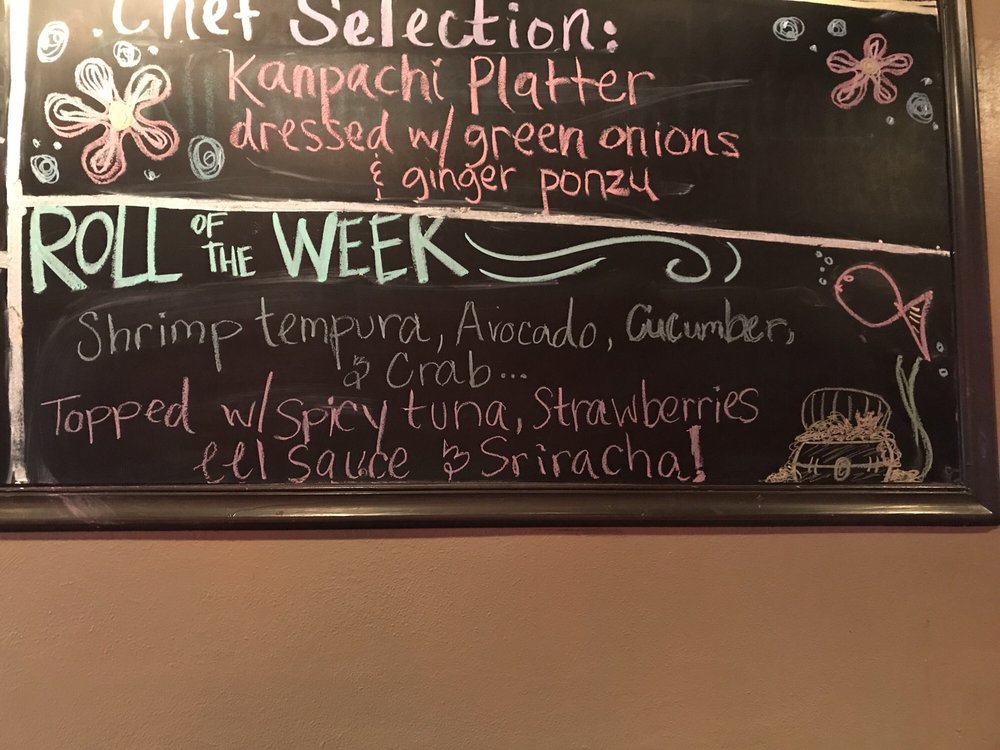 Chef Selection:
Kanpachi Platter
dressed w/ green onions
& ginger ponzu
ROLL OF THE WEEK
Shrimp tempura, Avocado, Cucumber,
& Crab...
Topped w/ spicy tuna, Strawberries
eel sauce & Sriracha!